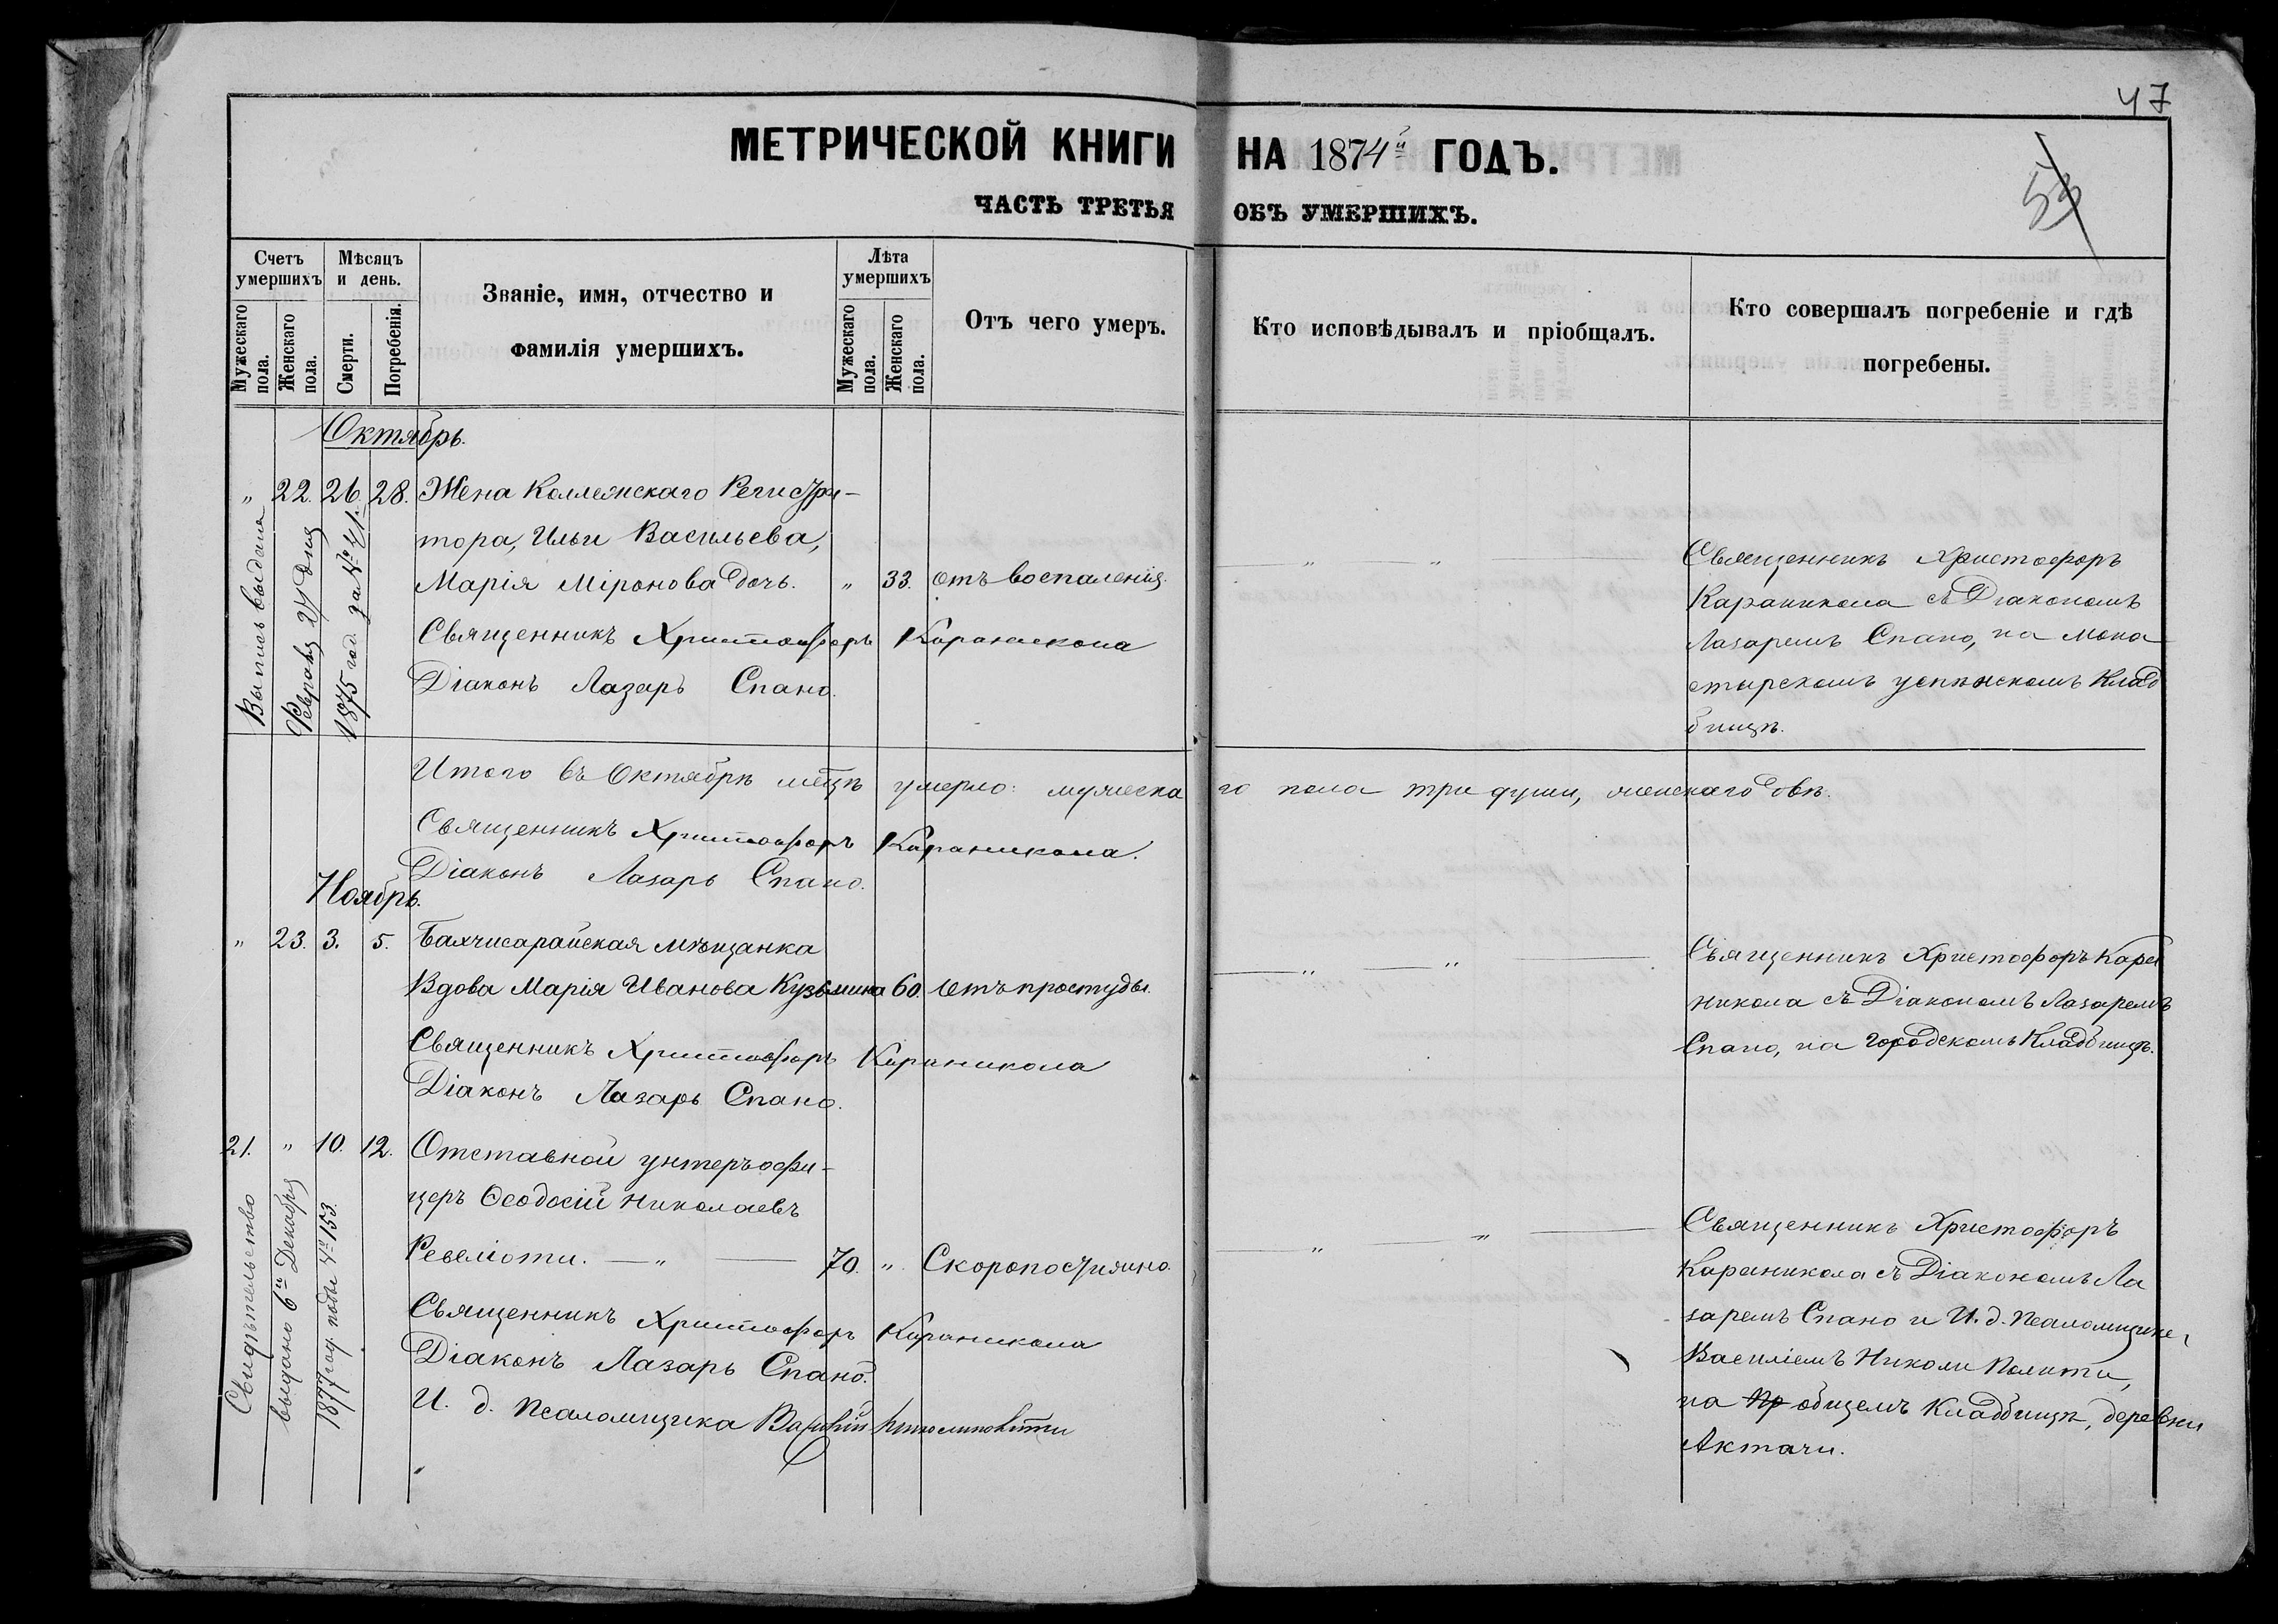 47
МЕТРИЧЕСКОЙ КНИГИ НА 1874й ГОДЪ.
53
ЧАСТЬ ТРЕТЬЯ ОБЪ УМЕРШИХЪ.
Счетъ умершихъ
Мужескаго пола.
Женскаго пола.
Мѣсяцъ и день.
Смерти.
Погребенія.
Званіе, имя, отчество и
фамилія умершихъ.
Лѣта умершихъ
Мужескаго пола.
Женскаго пола.
Отъ чего умеръ.
Кто исповѣдывалъ и пріобщалъ.
Кто совершалъ погребеніе и гдѣ
погребены.
Октябрь.
" 22. 26. 28. Жена Коллежскаго Регистра-
тора, Ильи Васильева,
Марія Міронова дочь. " 33. отъ воспаленія.
Священникъ Христофоръ Караникола
Діаконъ Лазарь Спано.
Выпись выдана
Февраля 27 дня
1875 год. за №
" "
Священникъ Христофоръ
Караникола съ Діакономъ
Лазаремъ Спано, на Мона
стырскомъ успѣнскомъ Клад
бищѣ.
Итого въ Октябрѣ мѣцѣ умерло: мужеска го пола три души, женскаго двѣ.
Священникъ Христофоръ Караникола.
Діаконъ Лазарь Спано.
Ноябрь.
" 23. 3. 5. Бахчисарайская мѣщанка
Вдова Марія Иванова Кузьмина 60. Отъ простуды.
Священникъ Христофоръ Караникола
Діаконъ Лазарь Спано.
" "
Священникъ Христофоръ Кара
никола съ Діакономъ Лазаремъ
Спано, на Городскомъ Кладбищѣ.
21. " 10. 12. Отставной унтеръ офи-
церъ Ѳеодосій Николаевъ
Ревеліоти. " 70. " Скоропостижно.
Священникъ Христофоръ Караникола
Діаконъ Лазарь Спано.
И. д. Псаломщика Василій
Свидѣтельство
выдано 6го Декабря
1877 год. подъ № 153.
" "
Священникъ Христофоръ
Караникола съ Діакономъ Ла
заремъ Спано и И. д. Псаломщика,
Василіемъ Николи Полити,
на пр общемъ Кладбищѣ, деревни
Актачи.